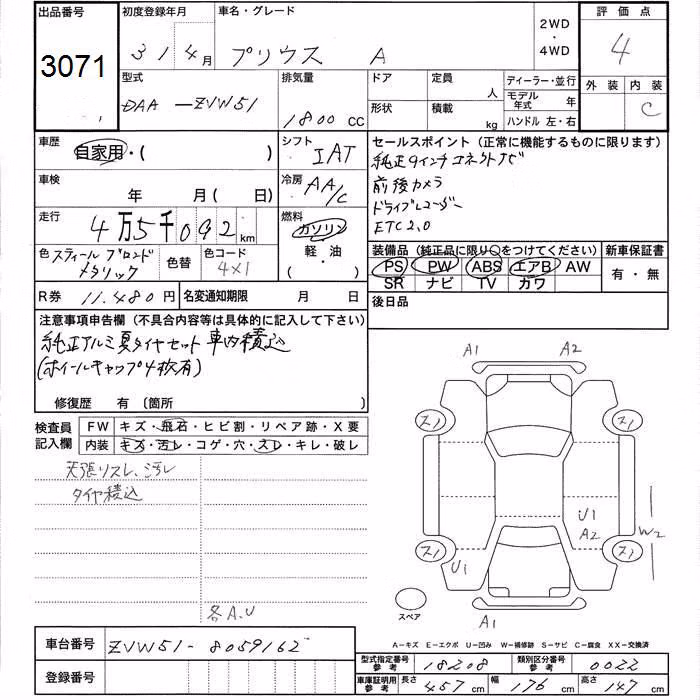 出品番号
3071
初度登録年月
31 4月
車名・グレード
プリウス A
2WD
・
4WD
評価点
4
外装 内装
C
型式
DAA-ZVW51
排気量
1800 CC
ドア
定員 人
形状
積載 kg
ディーラー・並行
モデル年式 年
ハンドル 左・右
車歴
自家用・( )
シフト
IAT
車検
年 月(日)
冷房
AA/C
走行
4万5千092km
燃料
ガソリン
軽・油
・( )
色 スティールブロンドメタリック
色替
色コード
4X1
R券 11,480円
名変通知期限 月 日
セールスポイント(正常に機能するものに限ります)
純正9インチコネクトナビ
前後カメラ
ドライブレコーダー
ETC2.0
装備品(純正品に限り○をつけてください)
PS PW ABS エアB AW
SR ナビ TV カワ
新車保証書
有・無
後日品
注意事項申告欄(不具合内容等は具体的に記入して下さい)
純正アルミ夏タイヤセット車内積込
(ホイールキャップ4枚有)
修復歴 有(箇所 )
検査員記入欄
FW キズ・飛石・ヒビ割・リペア跡・X要
内装 キズ・汚レ・コゲ・穴・スレ・キレ・破レ
天張リスレ、汚レ
タイヤ積込
各A.U
A1 A2
スノ スノ
U1
A2
W2
スノ スノ
U1
スペア
A1
A-キズ E-エクボ U-凹み W-補修跡 S-サビ C-腐食 XX-交換済
車台番号 ZVW51-8059162
登録番号
型式指定番号 参考 18208
類別区分番号 参考 0022
車庫証明用 参考 長さ 457cm 幅 176cm 高さ 147cm